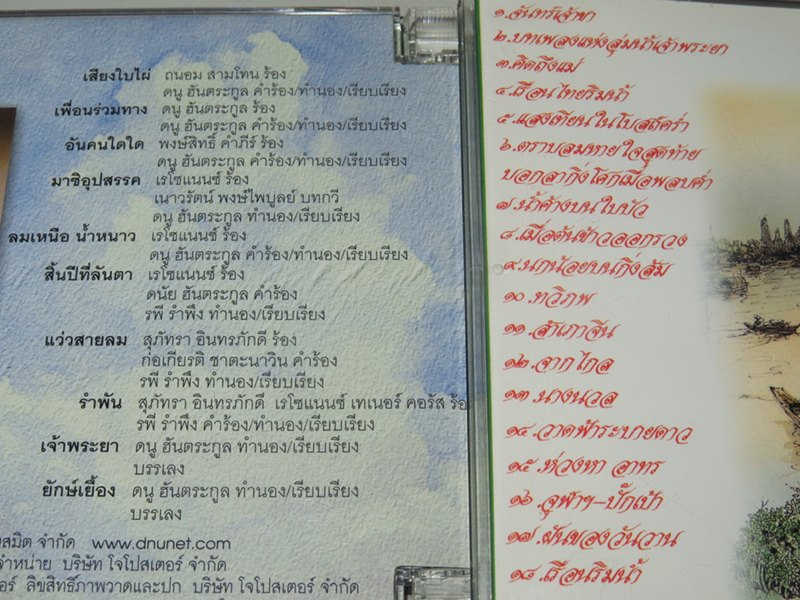 เสียงใบไผ่ ถนอม สามโทน ร้อง
ดนู ฮันตระกูล คำร้อง/ทำนอง/เรียบเรียง
เพื่อนร่วมทาง ดนู ฮันตระกูล ร้อง
ดนู ฮันตระกูล คำร้อง/ทำนอง/เรียบเรียง
อันคนใดใด พงษ์สิทธิ์ คำภีร์ ร้อง
ดนู ฮันตระกูล คำร้อง/ทำนอง/เรียบเรียง
มาซิอุปสรรค เรโซแนนซ์ ร้อง
เนาวรัตน์ พงษ์ไพบูลย์ บทกวี
ดนู ฮันตระกูล ทำนอง/เรียบเรียง
ลมเหนือ น้ำหนาว เรโซแนนซ์ ร้อง
ดนู ฮันตระกูล คำร้อง/ทำนอง/เรียบเรียง
สิ้นปีที่ลันตา เรโซแนนซ์ ร้อง
ดนัย ฮันตระกูล คำร้อง
รพี รำพึง ทำนอง/เรียบเรียง
แว่วสายลม สุภัทรา อินทรภักดี ร้อง
ก่อเกียรติ ชาตะนาวิน คำร้อง
รพี รำพึง ทำนอง/เรียบเรียง
รำพัน สุภัทรา อินทรภักดี เรโซแนนซ์ เทเนอร์ คอรัส ร้อ
รพี รำพึง คำร้อง/ทำนอง/เรียบเรียง
เจ้าพระยา ดนู ฮันตระกูล ทำนอง/เรียบเรียง
บรรเลง
ยักษ์เยื้อง ดนู ฮันตระกูล ทำนอง/เรียบเรียง
บรรเลง
สมิต จำกัด www.dnunet.com
จำหน่าย บริษัท โจโปสเตอร์ จำกัด
อร์ ลิขสิทธิ์ภาพวาดและปก บริษัท โจโปสเตอร์ จำกัด
๑.จันทร์เจ้าขา
๒.บทเพลงแห่งลุ่มน้ำเจ้าพระยา
๓.คิดถึงแม่
๔.เรือนไทยริมน้ำ
๕.แสงเทียนในโบสถ์คร่ำ
๖.ตราบลมหายใจสุดท้าย
บอกลากิ่งโศกเมื่อพลบค่ำ
๗.น้ำค้างบนใบบัว
๘.เมื่อต้นข้าวออกรวง
๙.นกน้อยบนกิ่งส้ม
๑๐.ทวิภพ
๑๑.สำเภาจีน
๑๒.จากไกล
๑๓.นางนวล
๑๔.วาดฟ้าระบายดาว
๑๕.ห่วงหา อาทร
๑๖.จุฬาฯ-ปั๊กเป้า
๑๗.ฝันของวันวาน
๑๘.เรือนริมน้ำ